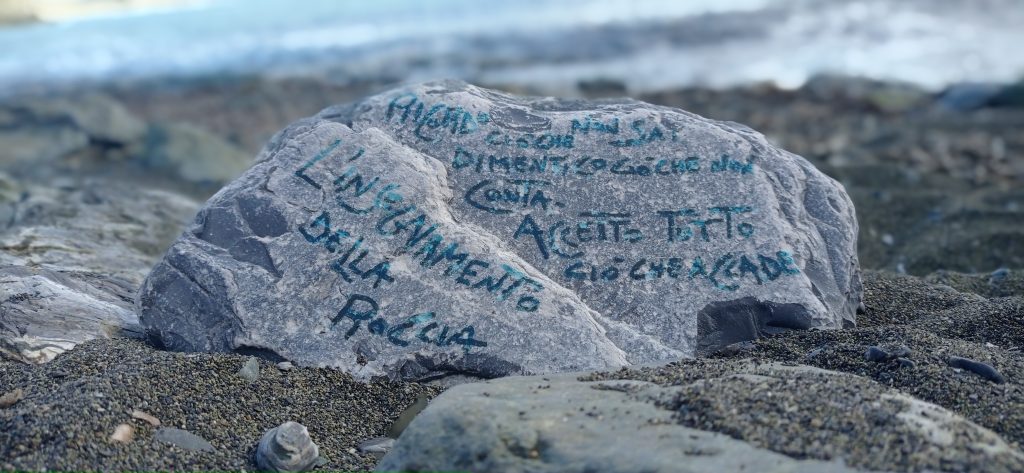 L'INSEGNAMENTO
DELLA
ROCCIA
RICORDO
CIÒ CHE NON SAI
DIMENTICO CIÒ CHE NON
CONTA.
ACCETTO TUTTO
CIÒ CHE ACCADE